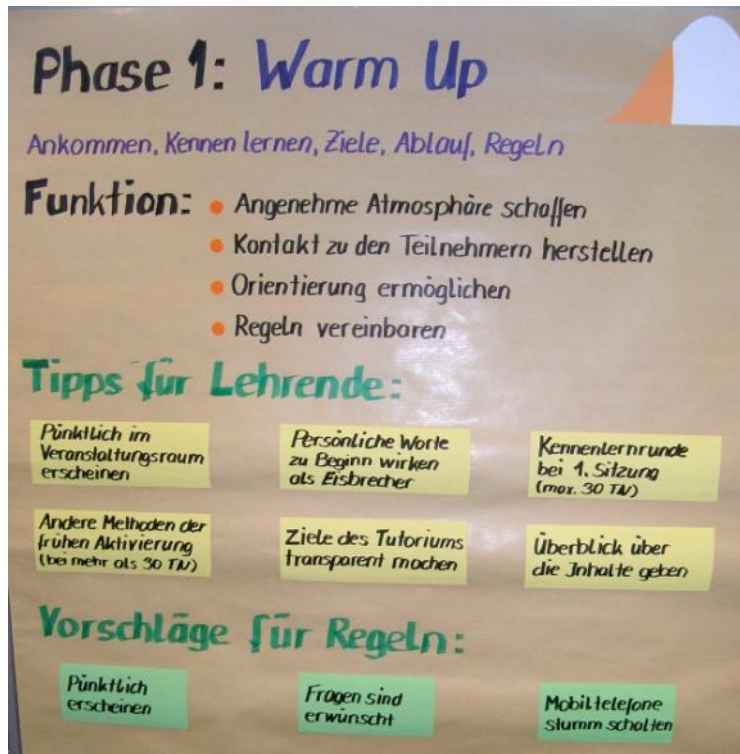 Phase 1: Warm Up
Ankommen, Kennen lernen, Ziele, Ablauf, Regeln
Funktion:
• Angenehme Atmosphäre schaffen
• Kontakt zu den Teilnehmern herstellen
• Orientierung ermöglichen
• Regeln vereinbaren
Tipps für Lehrende:
Pünktlich im
Veranstaltungsraum
erscheinen
Persönliche Worte
zu Beginn wirken
als Eisbrecher
Kennenlernrunde
bei 1. Sitzung
(max. 30 TN)
Andere Methoden der
frühen Aktivierung
(bei mehr als 30 TN)
Ziele des Tutoriums
transparent machen
Überblick über
die Inhalte geben
Vorschläge für Regeln:
Pünktlich
erscheinen
Fragen sind
erwünscht
Mobiltelefone
stumm schalten